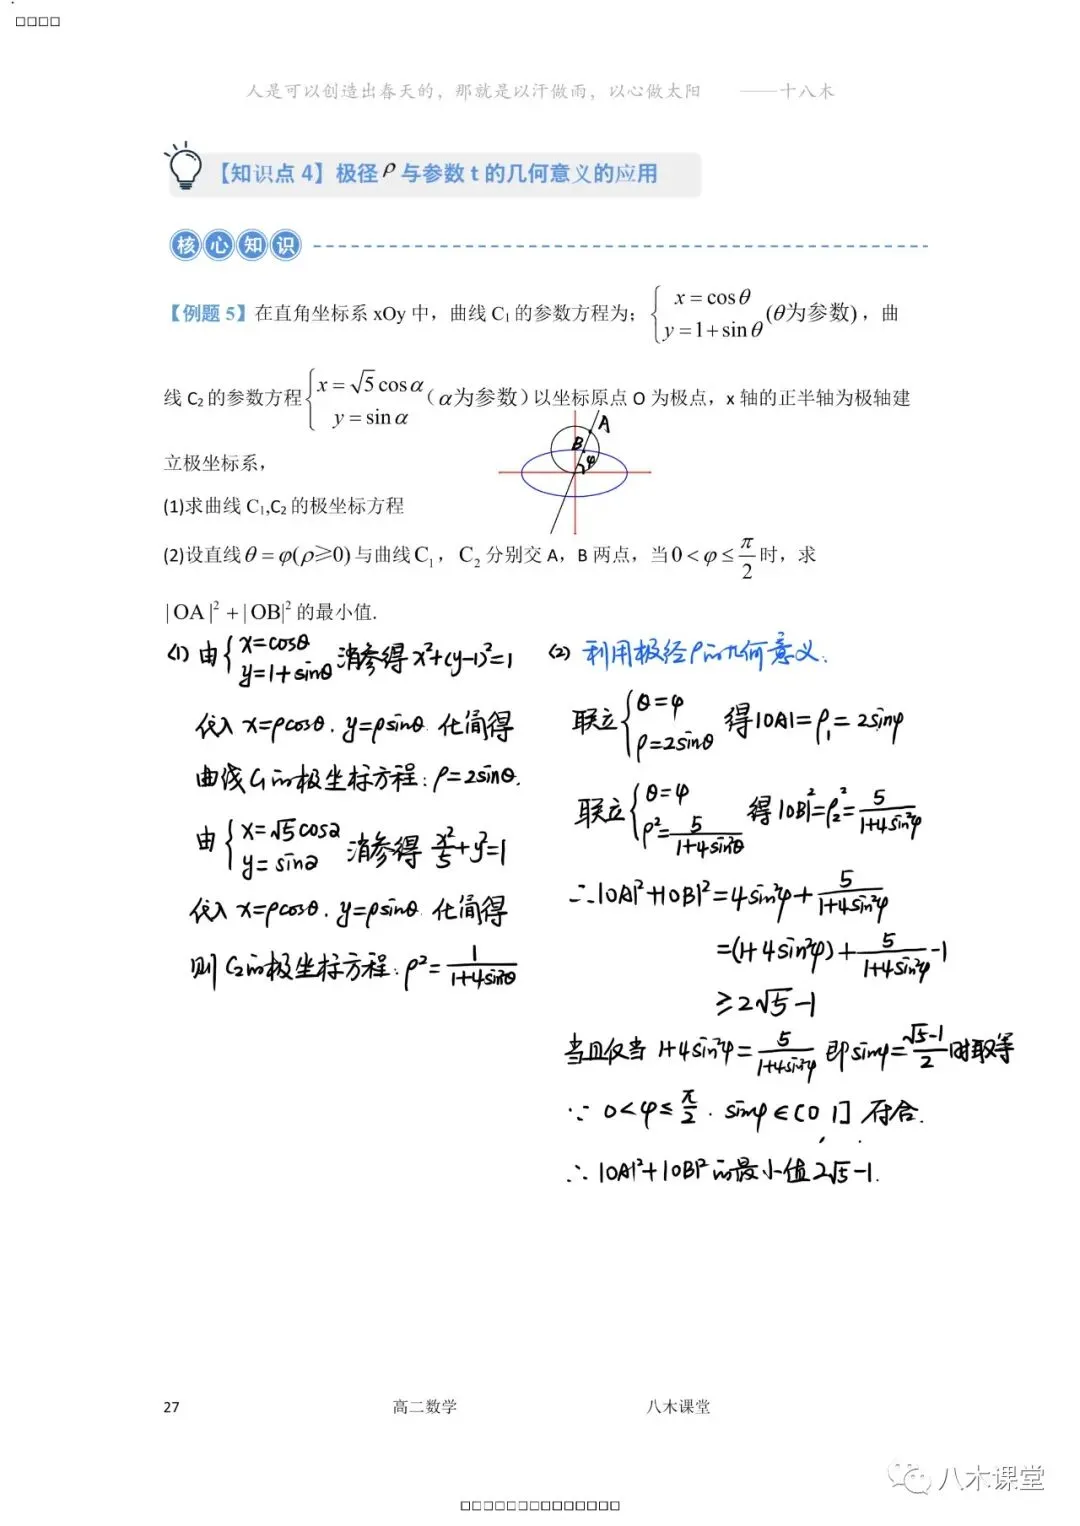 人是可以创造出春天的，那就是以汗做雨，以心做太阳 ——十八木
【知识点 4】极径 ρ 与参数 t 的几何意义的应用
核心知识
【例题 5】在直角坐标系 xOy 中，曲线 C₁ 的参数方程为；{x = cosθ y = 1 + sinθ (θ为参数)，曲
线 C₂ 的参数方程{x = √5 cosα y = sinα（α为参数）以坐标原点 O 为极点，x 轴的正半轴为极轴建
立极坐标系，
A
B
φ
(1)求曲线 C₁,C₂ 的极坐标方程
(2)设直线θ = φ(ρ≥0)与曲线C₁，C₂ 分别交 A，B 两点，当0 < φ ≤ π/2 时，求
|OA|² + |OB|² 的最小值.
(1) 由{x=cosθ y=1+sinθ 消参得 x²+(y-1)²=1
代入 x=ρcosθ. y=ρsinθ 化简得
曲线C₁的极坐标方程: ρ=2sinθ.
由{x=√5cos2 y=sin2 消参得 x²/5+y²=1
代入 x=ρcosθ. y=ρsinθ 化简得
则C₂的极坐标方程: ρ²=1/(1+4sin²θ)
(2) 利用极径ρ的几何意义.
联立{θ=φ ρ=2sinθ 得|OA|=ρ₁=2sinφ
联立{θ=φ ρ²=5/(1+4sin²θ) 得|OB|²=ρ₂²=5/(1+4sin²φ)
∴|OA|²+|OB|²=4sin²φ+5/(1+4sin²φ)
=(1+4sin²φ)+5/(1+4sin²φ)-1
≥2√5-1
当且仅当 1+4sin²φ=5/(1+4sin²φ) 即sinφ=(√5-1)/2时取等
∵ 0<φ≤π/2. sinφ∈(0,1] 符合.
∴|OA|²+|OB|²的最小值2√5-1.
27 高二数学 八木课堂
八木课堂